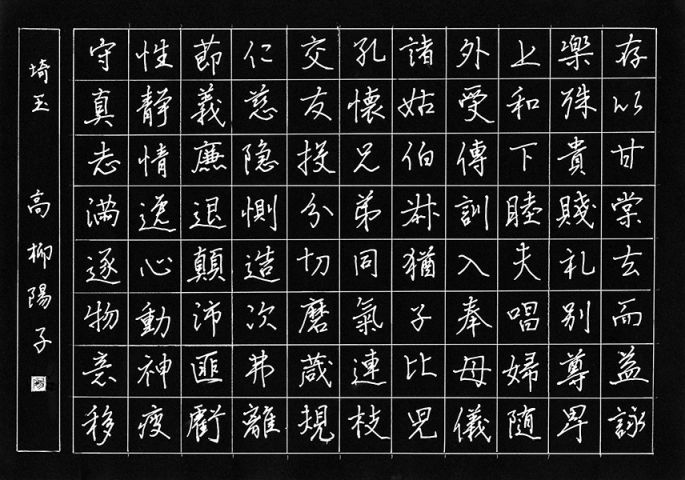 存以甘棠去而益詠
樂殊貴賤礼別尊卑
上和下睦夫唱婦随
外受傅訓入奉母儀
諸姑伯叔猶子比児
孔懐兄弟同氣連枝
交友投分切磨箴規
仁慈隠惻造次弗離
節義廉退顛沛匪虧
性静情逸心動神疲
守真志満逐物意移
埼玉 高柳陽子